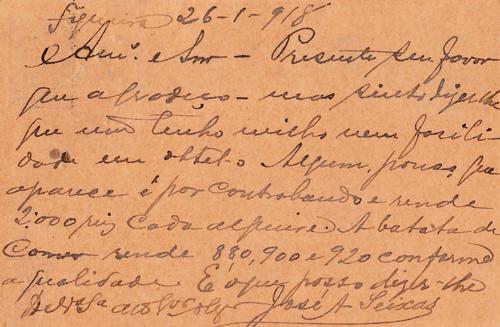 Figueira 26-1-918
Amº. e Snr - Presente seu favor
que agradeço - mas sinto dizer-lhe
que não tenho milho nem facili-
dade em obtel-o Algum, pouco, que
aparece é por contrabando e rende
2.000 reis cada alqueire. A batata de
comer rende 880, 900 e 920 conforme
a qualidade. É o que posso dizer-lhe
De Vª Sª
José A Seixas